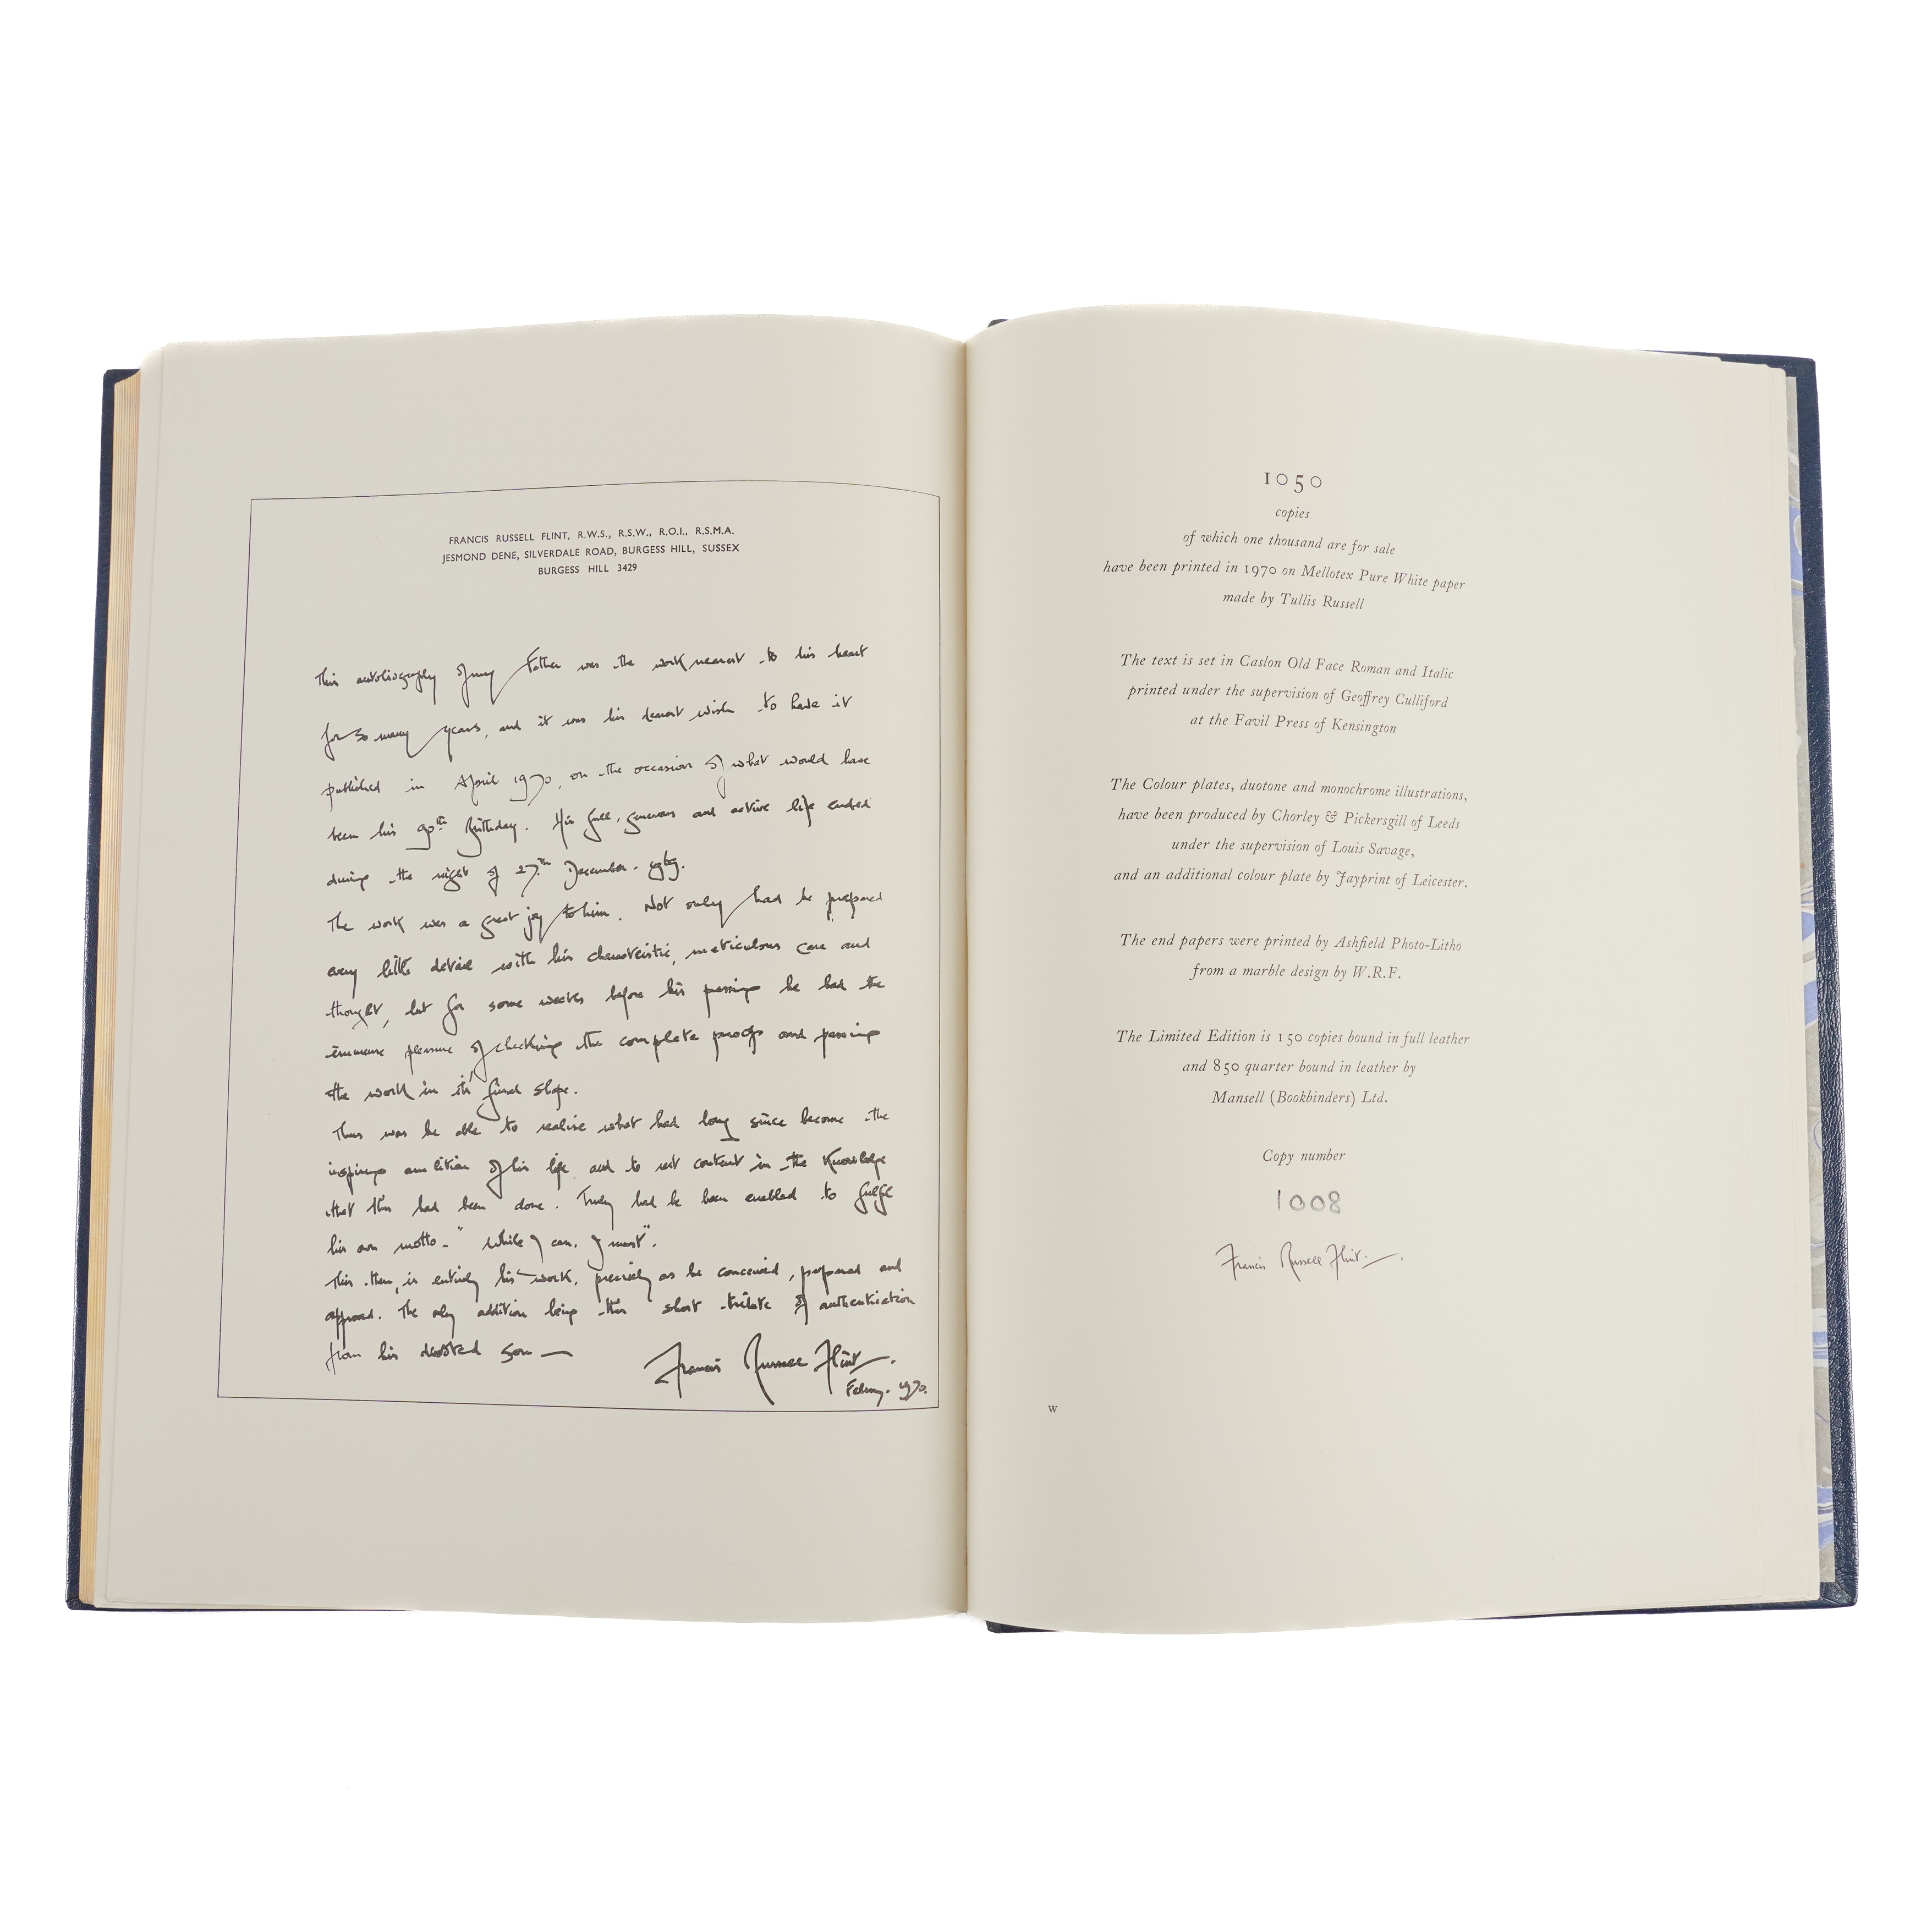 FRANCIS RUSSELL FLINT, R.W.S., R.S.W., R.O.I., R.S.M.A.
JESMOND DENE, SILVERDALE ROAD, BURGESS HILL, SUSSEX
BURGESS HILL 3429
This autobiography of my Father was the work nearest to his heart
for so many years, and it was his dearest wish to have it
published in April 1970, on the occasion of what would have
been his 90th Birthday. His full, generous and active life ended
during the night of 27th December. 1969.
The work was a great joy to him. Not only had he prepared
every little detail with his characteristic, meticulous care and
thought, but for some weeks before his passing he had the
immense pleasure of checking the complete proofs and passing
the work in its' final shape.
Thus was he able to realise what had long since become the
inspiring ambition of his life, and to rest content in the knowledge
that this had been done. Truly had he been enabled to fulfil
his own motto - "While I can, I must".
This then, is entirely his work, precisely as he conceived, prepared and
approved. The only addition being this short tribute & authentication
from his devoted son —
Francis Russell Flint.
Febury. 1970.
1050
copies
of which one thousand are for sale
have been printed in 1970 on Mellotex Pure White paper
made by Tullis Russell
The text is set in Caslon Old Face Roman and Italic
printed under the supervision of Geoffrey Culliford
at the Favil Press of Kensington
The Colour plates, duotone and monochrome illustrations,
have been produced by Chorley & Pickersgill of Leeds
under the supervision of Louis Savage,
and an additional colour plate by Jayprint of Leicester.
The end papers were printed by Ashfield Photo-Litho
from a marble design by W.R.F.
The Limited Edition is 150 copies bound in full leather
and 850 quarter bound in leather by
Mansell (Bookbinders) Ltd.
Copy number
1008
Francis Russell Flint.
W